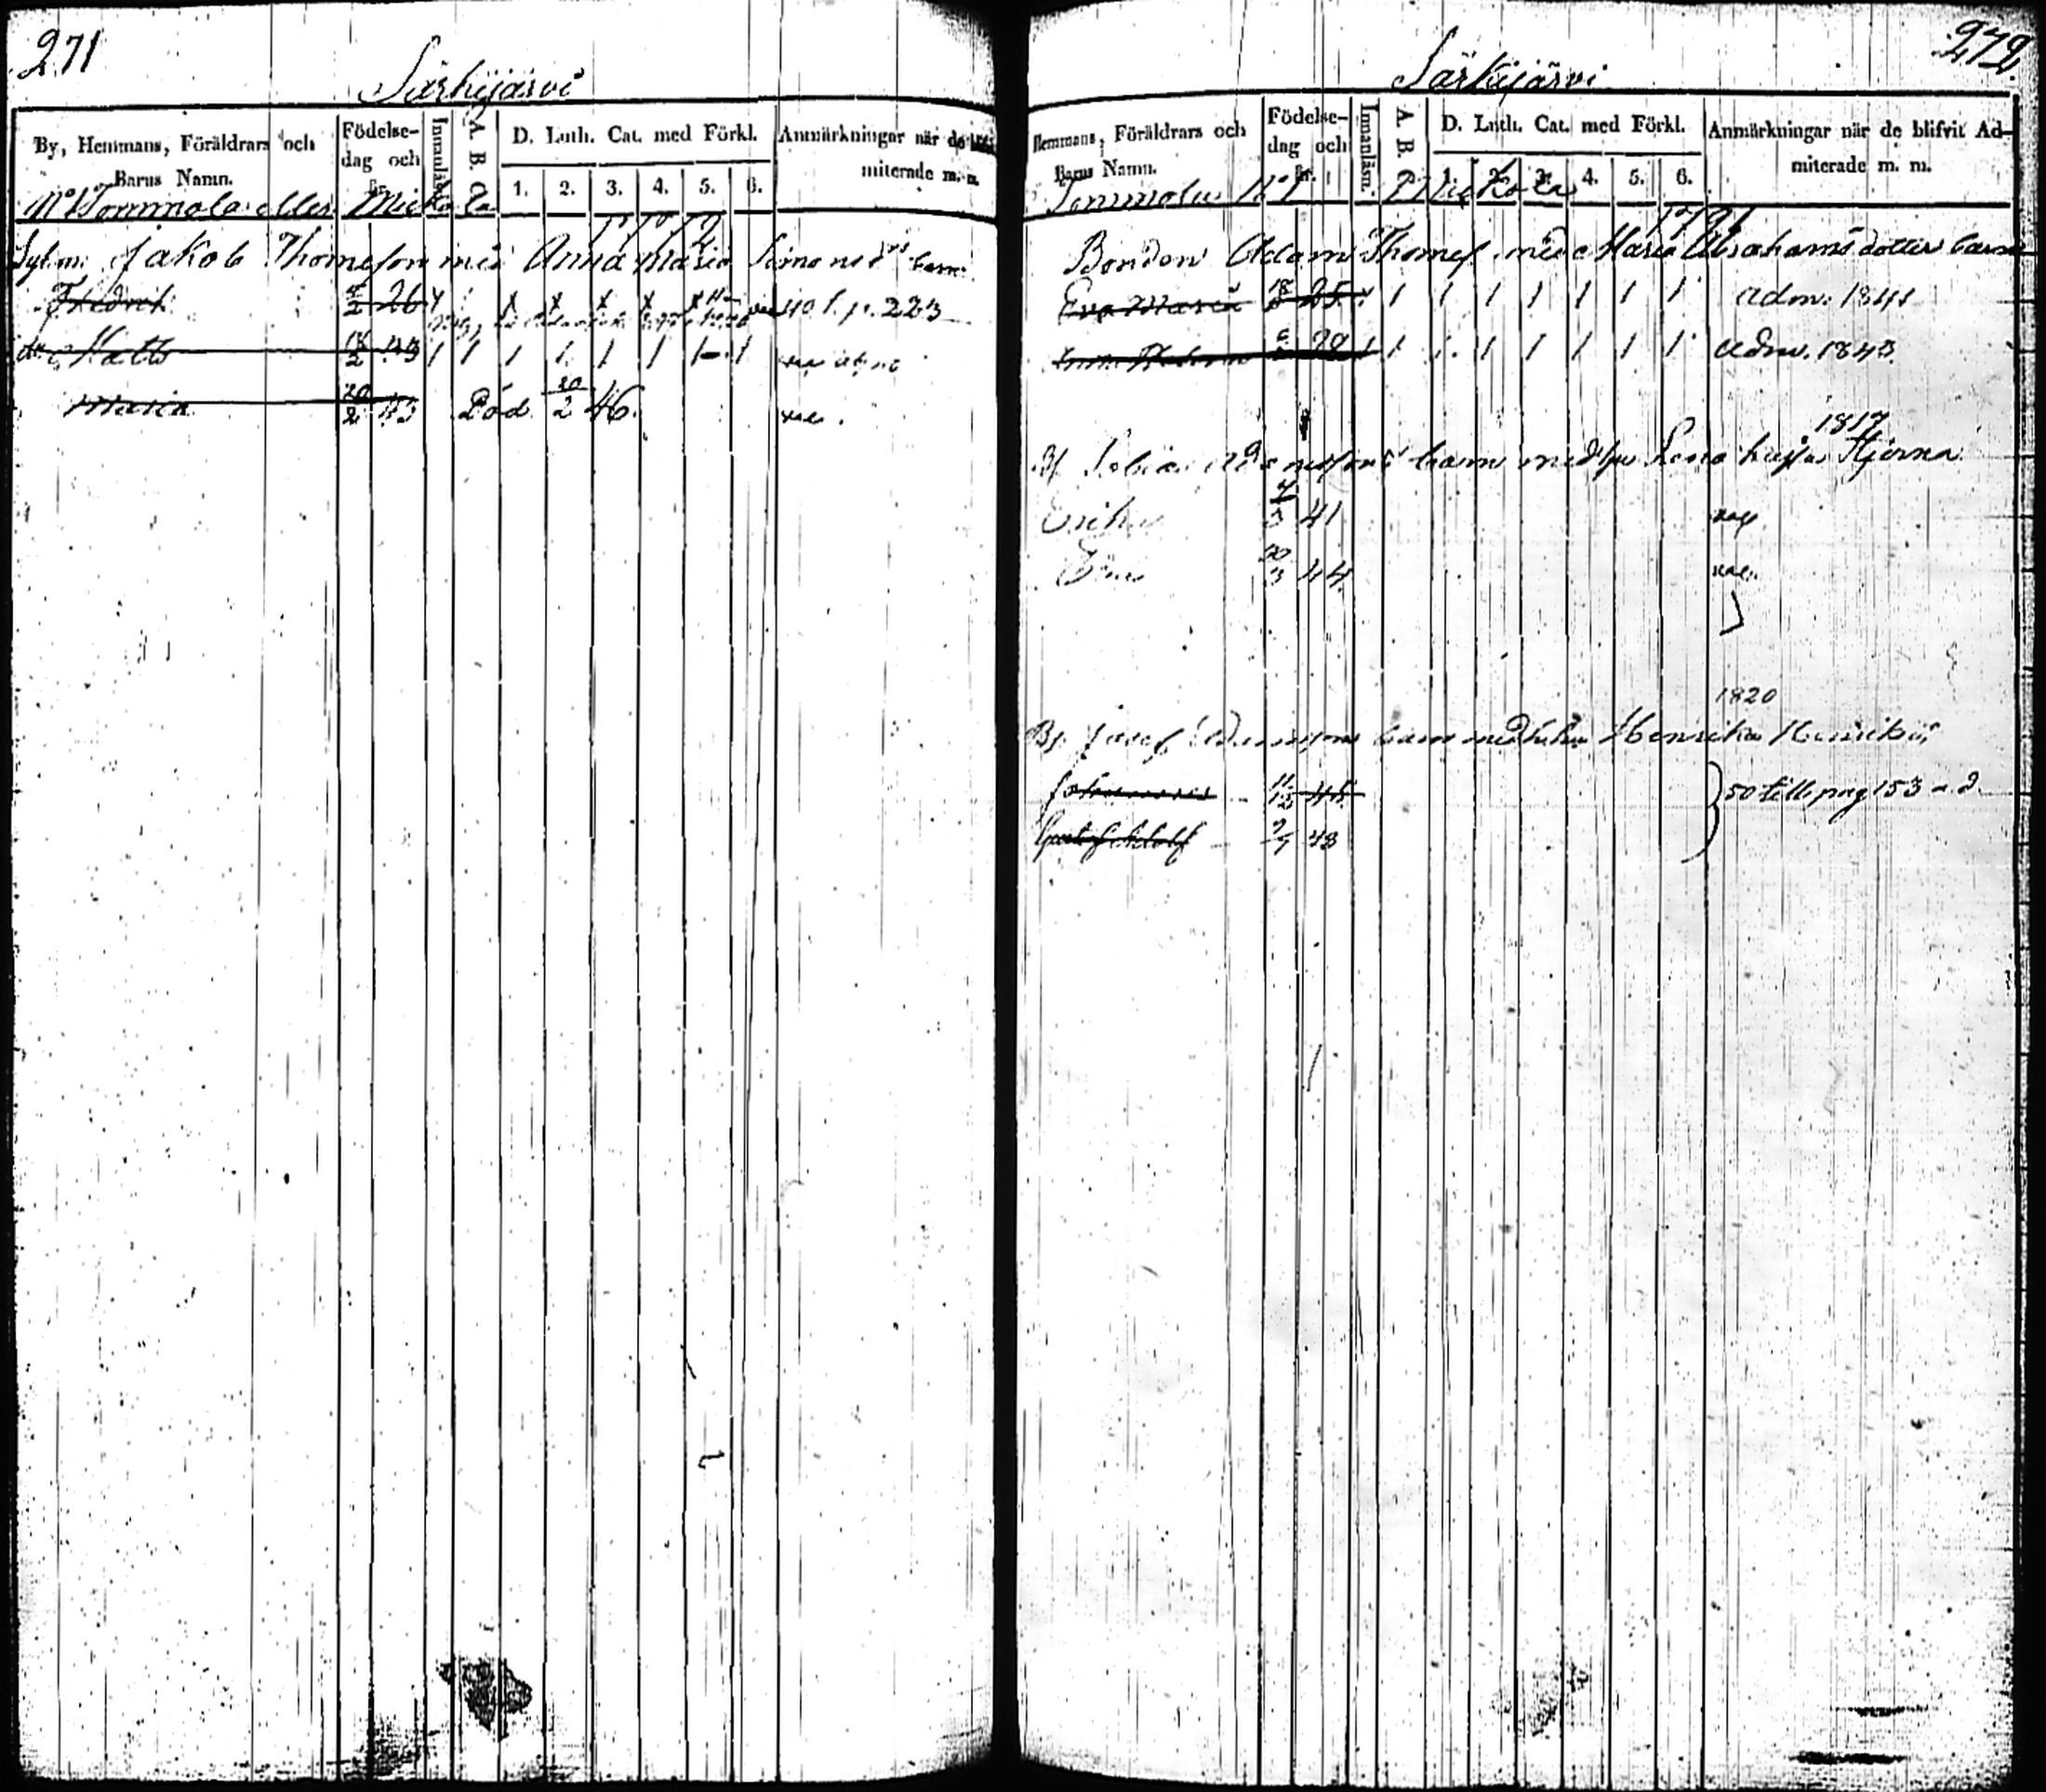 271
Särkijärvi
By, Hemmans, Föräldrars och Barns Namn.
Födelse-dag och år.
Innanläsn.
A. B. C.
D. Luth. Cat. med Förkl.
1. 2. 3. 4. 5. 6.
Anmärkningar när de miterade m. m.
Tommola eller Mickola
Jakob Thomasson med Anna Maria Simonsd barn
Fredrik 26 40 f. p. 223
Matts 18/2 43 1 1 1 1 1 1 1 1
Maria 20/2 43 Död 20/2 46
272.
Särkijärvi
Hemmans, Föräldrars och Barns Namn.
Födelse-dag och år.
Innanläsn.
A. B. C.
D. Luth. Cat. med Förkl.
1. 2. 3. 4. 5. 6.
Anmärkningar när de blifvit Ad-miterade m. m.
Tommola No 1 Mickola
1791
Bonden Adam Thomas. med Maria Abrahamsdotter barn
Eva Maria 25 1 1 1 1 1 1 1 Adm. 1841
28 1 1 1 1 1 1 1 1 Adm. 1843.
1817
barn med Lena Stjerna
Erika 41
44
1820
Josef Adamssons barn med Henrika Henriksd
Johannes 45
Gustaf Adolf 48
50 till pag 153